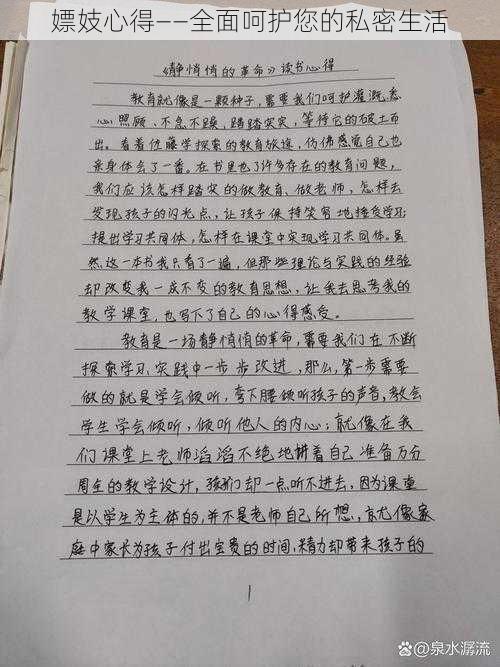 嫖妓心得——全面呵护您的私密生活
《静悄悄的革命》读书心得
教育就像是一颗种子,需要我们呵护灌溉,悉
心照顾、不急不躁,踏踏实实,等待它的破土而
出。看着佐藤学探索的教育旅途,仿佛感觉自己也
亲身体会了一番。在书里也了许多存在的教育问题,
我们应该怎样踏实的做教育、做老师,怎样去
发现孩子的闪光点,让孩子保持笑容地接受学习;
提出学习共同体,怎样在课堂中实现学习共同体。虽
然这一本书我只看了一遍,但那些理论与实践的经验
却改变我一成不变的教育思想,让我去思考我的
教学课堂,也写下了自己的心得感受。
教育是一场静悄悄的革命,需要我们在不断
探索学习、实践中一步步改进,那么,第一步需要
做的就是学会倾听,弯下腰倾听孩子的声音,教会
学生学会倾听,倾听他人的内心;就像在我
们课堂上老师滔滔不绝地讲着自己准备万分
周全的教学设计,孩们却一点听不进去,因为课堂
是以学生为主体的,并不是老师自己所想,就像家
庭中家长为孩子付出宝贵的时间、精力却带来孩子的
1
@泉水潺流